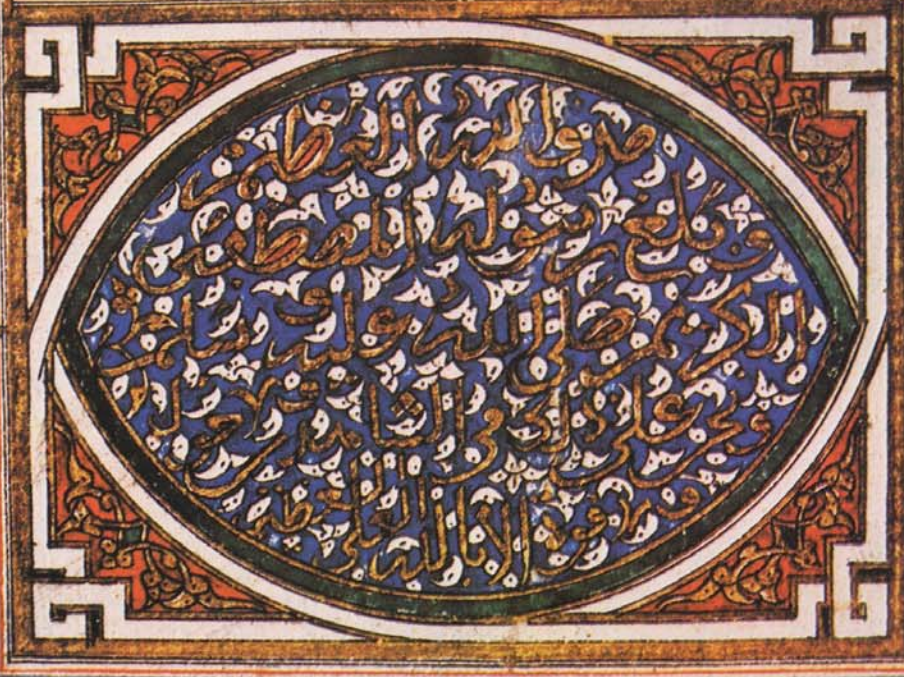 صدق الله العظيم
و بلغ رسوله المصطفى
الكريم صلى الله عليه و سلم
و نحن على ذلك من الشاهدين و لا حول
و لا قوة إلا بالله العلي العظيم